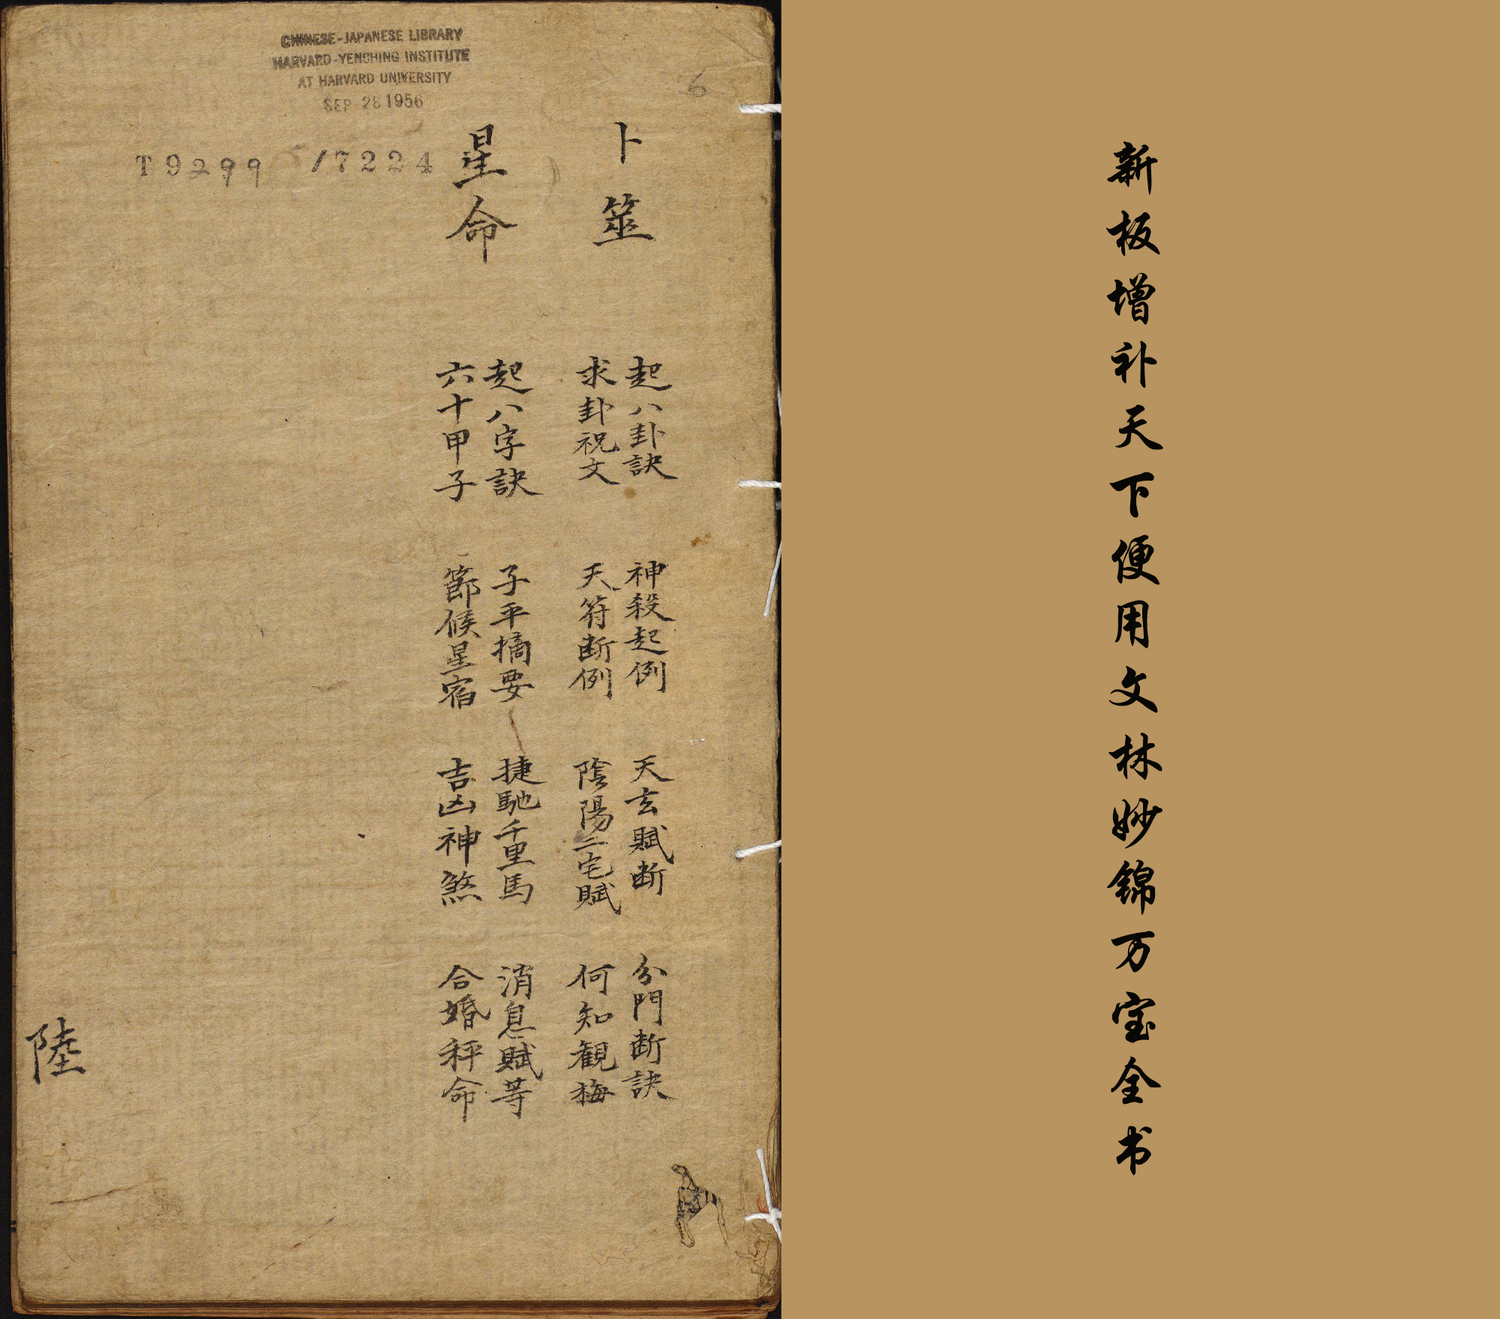 CHINESE-JAPANESE LIBRARY
HARVARD-YENCHING INSTITUTE
AT HARVARD UNIVERSITY
SEP 26 1956
6
T 9299 /7224
卜筮
起八卦訣 神殺起例 天玄賦断 分門断訣
求卦祝文 天符断例 陰陽二宅賦 何知観梅
星命
起八字訣 子平摘要 捷馳千里馬 消息賦等
六十甲子 節候星宿 吉凶神煞 合婚秤命
陸
新板增补天下便用文林妙锦万宝全书